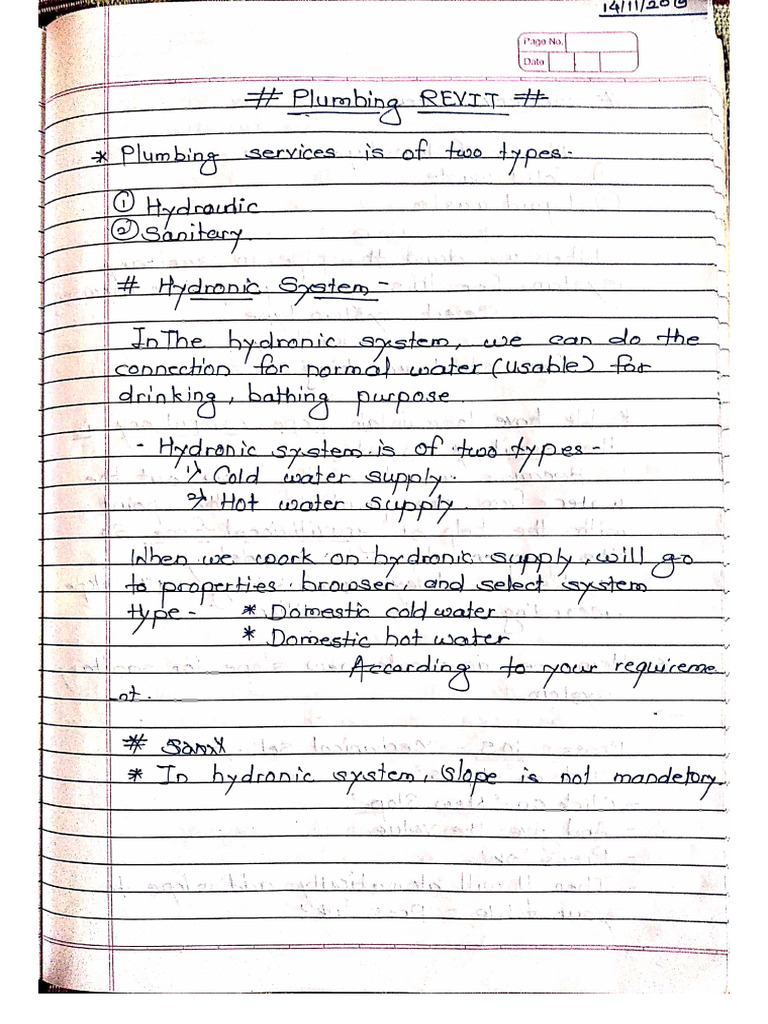 14/11/2019
Page No.
Date
# Plumbing REVIT #
* Plumbing services is of two types-
① Hydraulic
② Sanitary.
# Hydronic System -
In The hydronic system, we can do the
connection for normal water (usable) for
drinking, bathing purpose.
- Hydronic system is of two types -
1) Cold water supply.
2) Hot water supply.
When we work on hydronic supply, will go
to properties browser, and select system
type - * Domestic cold water
* Domestic hot water
According to your requireme
nt.
#
* In hydronic system, slope is not mandetory.